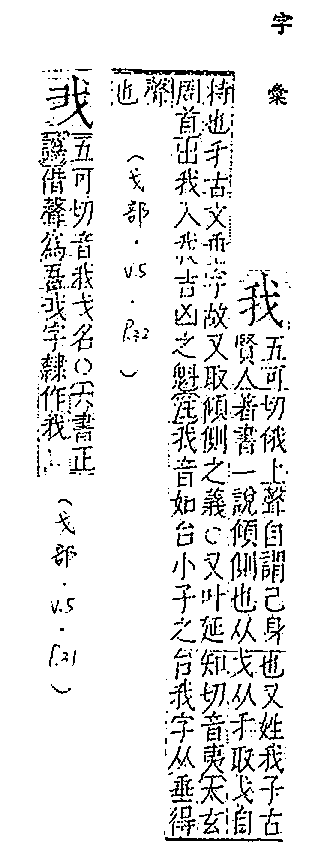 字彙
我
五可切俄上聲自謂己身也又姓我子古
賢人著書一說傾側也从戈从手取戈自
持也手古文垂字故又取傾側之義○又叶延知切音夷太玄
周首出我入我吉凶之魁我音如台小子之台我字从垂得
聲
也
(戈部.v.5.P.22)
五可切音我戈名○六書正
譌借聲為吾我字隸作我
(戈部.v.5.P.21)